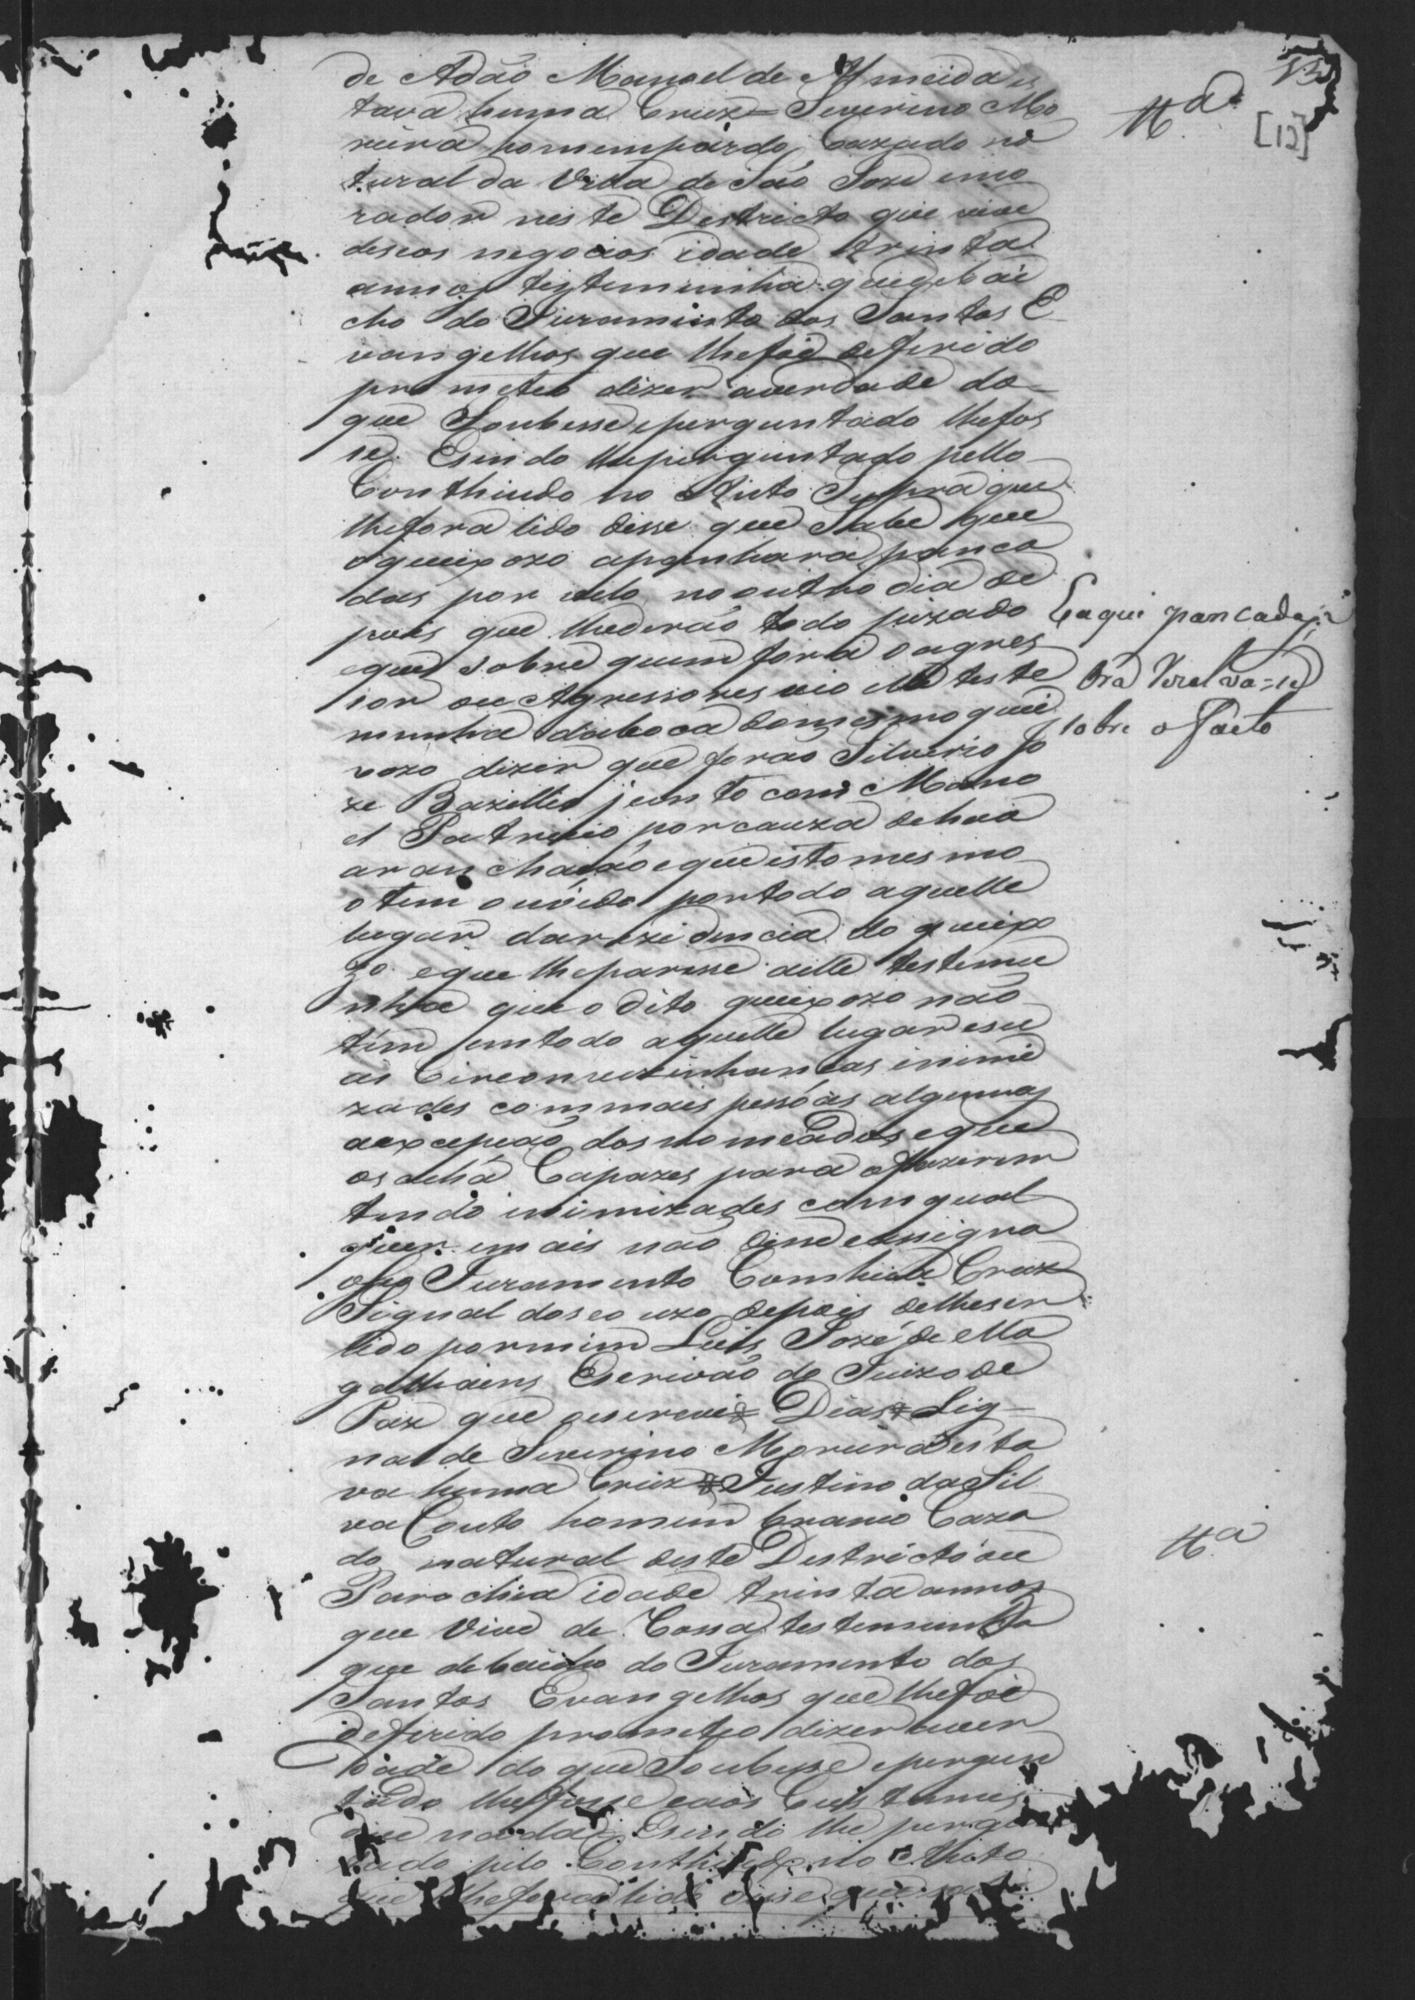 de Adão Manoel de Almeida es
tava huma Cruz = Severino Mo
reira homem pardo, Cazado na
tural da Villa de São Joze emo
rador neste Destricto que vive
deseos negocios idade trinta
annos testemunha que debai
cho do Juramento dos Santos E
vangelhos que lhefoi deferido
prometeo dizer averdade do
que Soubesse eperguntado lhefos
se. Esendo lheperguntado pello
Conthiudo no Auto Supra que
lhefora lido disse que Sabe que
oqueixozo apanhara panca
das por velo nooutro dia de
pois que lhederão todo pizado
eque sobre quem fora o agres
sor ou Agressores uio elle teste
munha daboca domesmo quei
xozo dizer que forão Silverio Jo
ze Bazillio junto com Mano
el Patricio por cauza dehua
aranchação eque isto mesmo
otem ouvido portodo aquelle
lugar darezidencia do queixo
zo eque lheparesse aelle testemu
nha que o dito queixozo não
tem emtodo aquelle lugar eseu
as Circonvezinhancas inimi
zades commais pessoas algumas
aexcepção dos nomeados eque
os acha Capazes para ofazerem
tendo inimizades comqual
quer emais não disse eassigna
oseo Juramento Comhuã Cruz
Signal doseo uzo depois delheser
lido pormim Luis José de Ma
galhains Escrivão do Juizo de
Paz que oescrevi = Dias = Sig-
nal de Severino Moreira esta
va huma Cruz = Justino da Sil
va Couto homem branco Caza
do natural deste Destricto ou
Parochia idade trinta annos
que Vive de Cassa, testemunha
que debaicho do Juramento dos
Santos Evangelhos que lhefoi
deferido prometeo dizer aver
dade do que Soubesse epergun
tado lhefosse eaos Custumes
que nada. Esendo lhe pergun
tado pelo Conthiudo no Auto
que lhefora lido disse que
4ª
[12]
Eaqui pancadas?
Ora Ver
sobre o facto
4ª